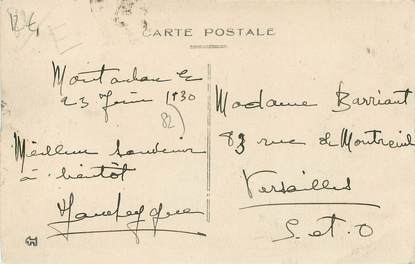 12 €
CARTE POSTALE
Montauban le
23 Juin 1930
82
Meilleur souvenir
à bientôt
Madame Barriant
83 rue de Montreuil
Versailles
S. et. O